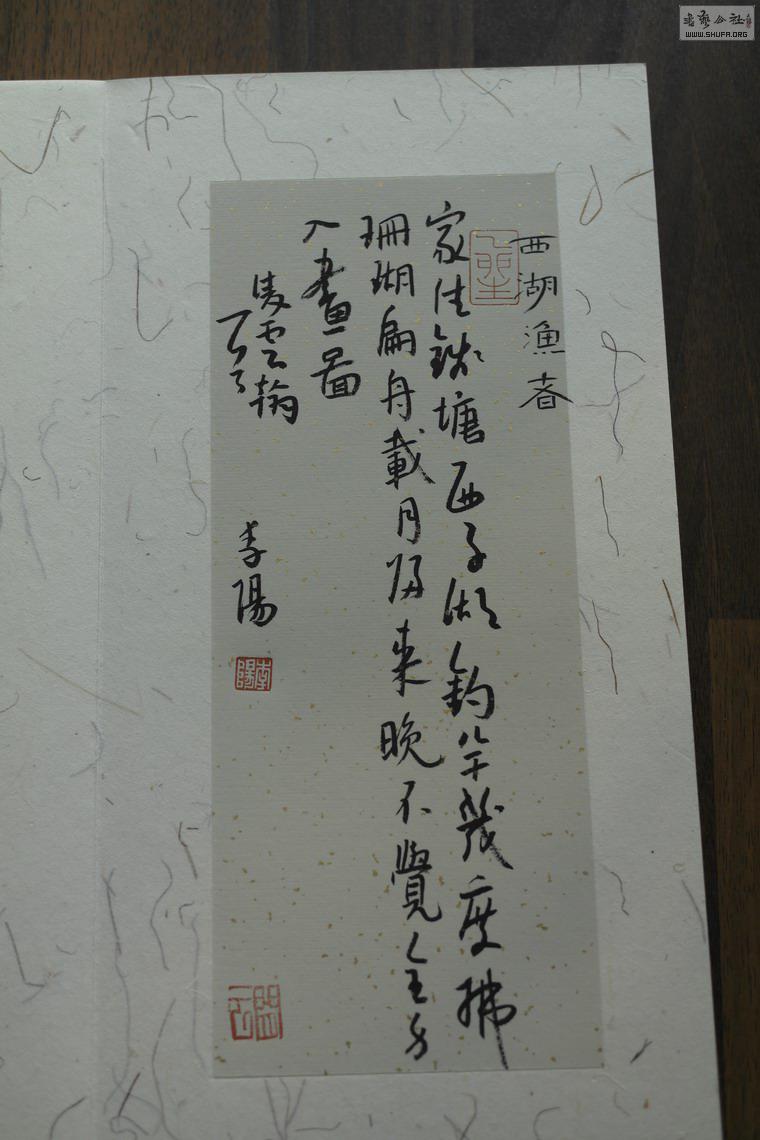 西湖漁者
家住錢塘西子湖釣竿幾度拂
珊瑚扁舟載月歸来晚不覺全身
入畫圖
凌雲翰
李陽
李陽
WWW.SHUFA.ORG